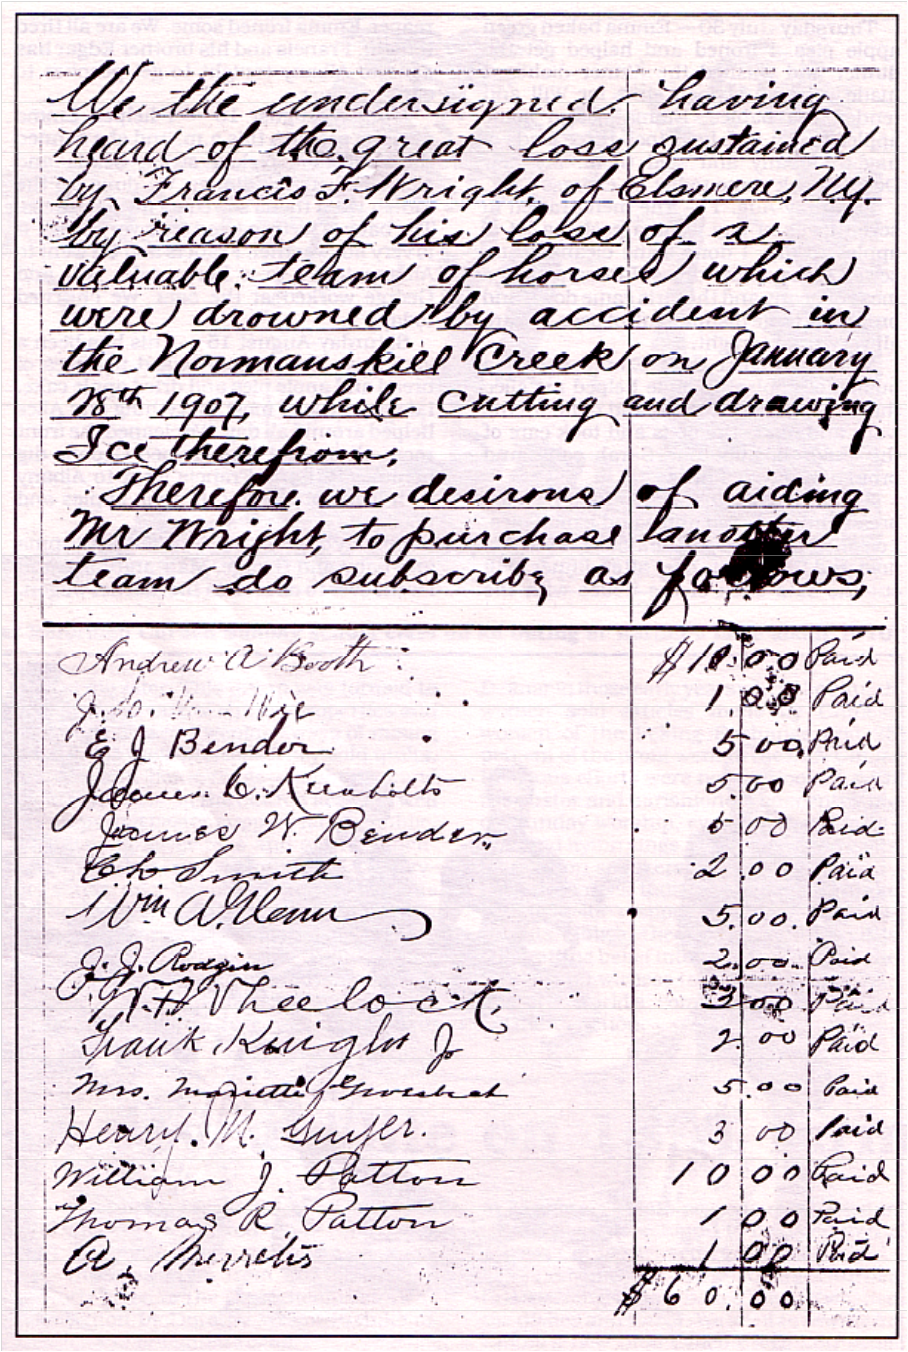 We, the undersigned. having
heard of the great loss sustained
by. Francis F. Wright, of Elsmere, N.Y.
by reason of his loss of a
valuable. team of horses which
were drowned by accident in
the Normanskill Creek on January
28th 1907, while cutting and drawing
Ice therefrom.
Therefore we desirous of aiding
Mr Wright, to purchase another
team do subscribe, as follows,
Andrew A Booth $10.00 Paid
J. 1 00 Paid
E J Bender 5 00. Paid
James C. 5.00 Paid
James W. Bender 5 00 Paid
Smith 2.00 Paid
Wm A. 5.00. Paid
J. J. 2.00. Paid
W. H Wheelock. 3 00 Paid
Frank Knight Jr 2. 00 Paid
Mrs. 5.00 Paid
Henry. M. Guyer. 3 00 Paid
William J. Patton 10 00 Paid
Thomas R Patton 1 00 Paid
A. 1 00 Paid
$ 60.00